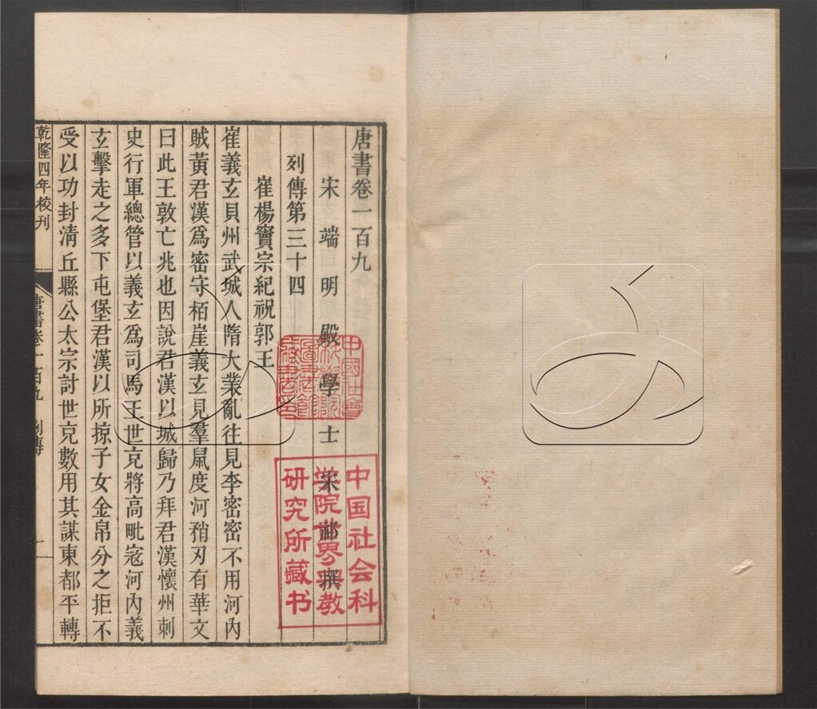 唐書卷一百九
宋端明殿學士宋祁撰
列傳第三十四
崔楊竇宗紀祝郭王
崔義玄貝州武城人隋大業亂往見李密密不用河內
賊黃君漢爲密守栢崖義玄見羣鼠度河矟刃有華文
曰此王敦亡兆也因說君漢以城歸乃拜君漢懷州刺
史行軍總管以義玄爲司馬王世充將高毗寇河內義
玄擊走之多下屯堡君漢以所掠子女金帛分之拒不
受以功封清丘縣公太宗討世充數用其謀東都平轉
乾隆四年校刊
唐書卷一百九 列傳
一
中国社会科
学院世界宗教
研究所藏书